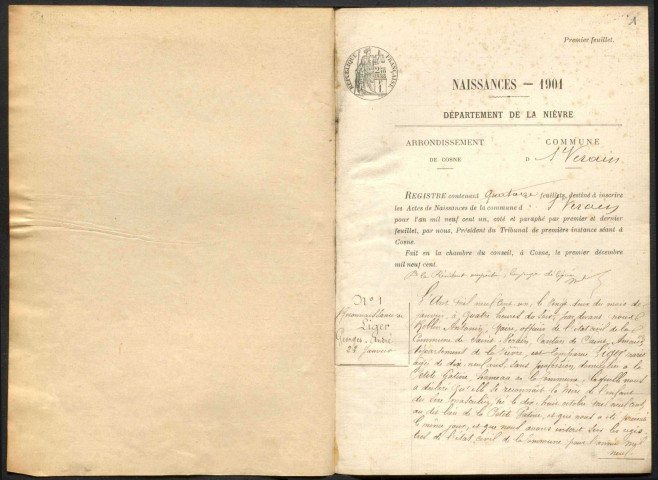 1
Premier feuillet.
RÉPUBLIQUE FRANÇAISE
NAISSANCES — 1901
DÉPARTEMENT DE LA NIÈVRE
ARRONDISSEMENT
DE COSNE
COMMUNE
D St Verain
REGISTRE contenant Quatorze feuillets, destiné à inscrire
les Actes de Naissances de la commune d St Verain
pour l'an mil neuf cent un, coté et paraphé par premier et dernier
feuillet, par nous, Président du Tribunal de première instance séant à
Cosne.
Fait en la chambre du conseil, à Cosne, le premier décembre
mil neuf cent.
No 1
Reconnaissance de
Liger
Georges
22 Janvier
L'An mil neuf cent un, le vingt deux du mois de
janvier, à quatre heures du soir, par devant nous
Antoine, Maire, officier de l'état civil de la
Commune de Saint Verain, Canton de Saint Amand,
département de la Nièvre, est comparue Liger
âgée de dix neuf ans, sans profession, domiciliée à la
Petite hameau de la commune, laquelle nous
a déclaré qu'elle se reconnaît la mère de l'enfant
du sexe masculin, né le dix huit octobre
au dit lieu de la Petite et qui nous a été présenté
le même jour, et que nous avons inscrit sur les regis
tres de l'état civil de la commune pour l'année mil
neuf